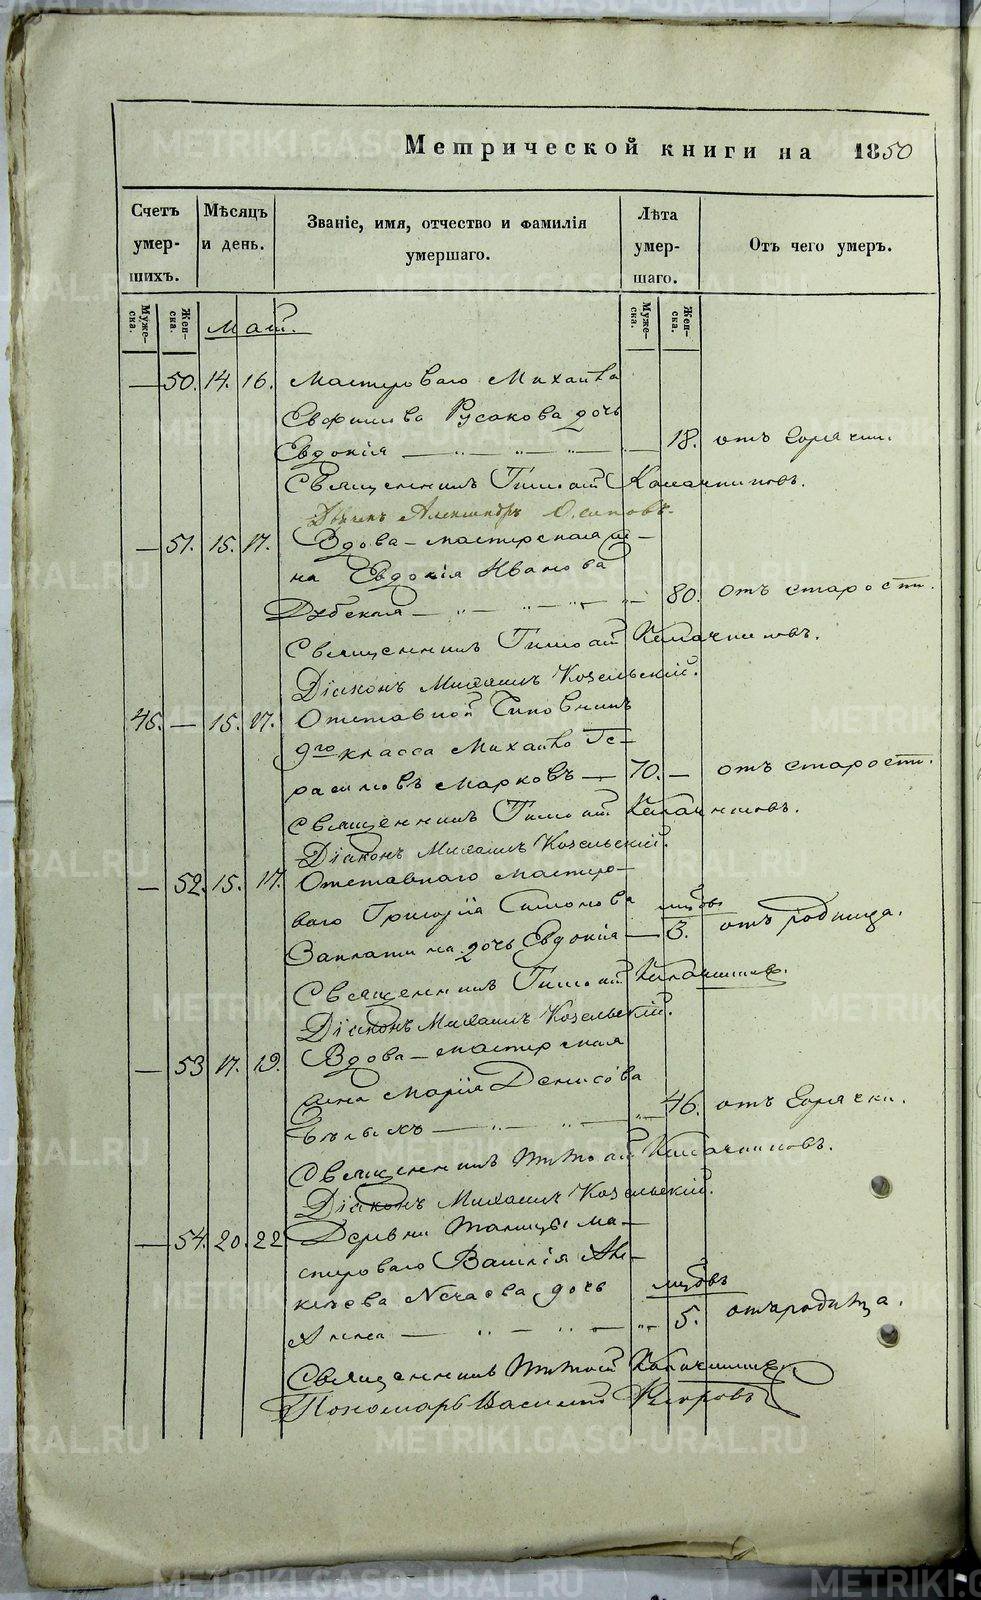 Метрической книги на 1850
Счетъ умер-шихъ.
Мѣсяцъ и день.
Званіе, имя, отчество и фамилія умершаго.
Лѣта умер-шаго.
Отъ чего умеръ.
Муже-ска.
Жен-ска.
Май.
Муже-ска.
Жен-ска.
— 50. 14. 16. Мастероваго Михаила
Русакова дочь
Евдокія — 18. отъ горячки.
Священникъ Калачниковъ.
Діаконъ Александръ Осиповъ.
— 51. 15. 17. Вдова — мастерская же-
на Евдокія Иванова
Дубская — 80. отъ старости.
Священникъ Калачниковъ.
Діаконъ Михаилъ Козельскій.
46. — 15. 17. Отставной Чиновникъ
9го класса Михаило Ге-
расимовъ Марковъ — 70. — отъ старости.
Священникъ Калачниковъ.
Діаконъ Михаилъ Козельскій.
— 52. 15. 17. Отставнаго мастеро-
ваго Григорія Симонова
Заплатина дочь Евдокія — 3. мѣсъ отъ родимца.
Священникъ Калачниковъ.
Діаконъ Михаилъ Козельскій.
— 53 17. 19. Вдова — мастерская
жена Марія Денисова
— 46. отъ горячки.
Священникъ Тимоѳей Калачниковъ.
Діаконъ Михаилъ Козельскій.
— 54. 20. 22 Деревни Талицы ма-
стероваго Василія
Нечаева дочь
Анна — 5. мѣсъ отъ родимца.
Священникъ Тимоѳей Калачниковъ
Пономарь Василій
METRIKI.GASO-URAL.RU